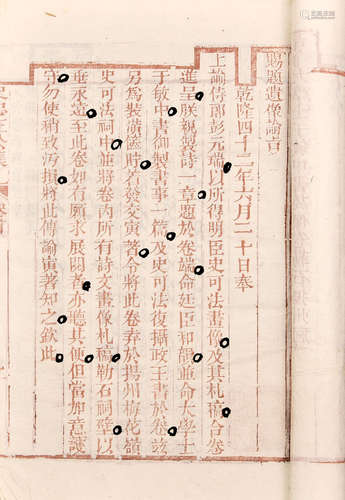 賜題遺像諭言
乾隆四十二年六月二十日奉
上諭侍郎彭元瑞以所得明臣史可法畫像及其札稿合卷
進呈朕親製詩一章題於卷端命廷臣和韻並命大學士
于敏中書御製書事一篇及史可法復攝政王書於卷兹
另為裝潢匣時若發交寅著令將此卷弆於揚州梅花嶺
史可法祠中並將卷內所有詩文畫像札稿勒石祠壁以
垂永遠至此卷如有願求展閱者亦聽其便但當加意護
守勿使稍致污損將此傳諭寅著知之欽此